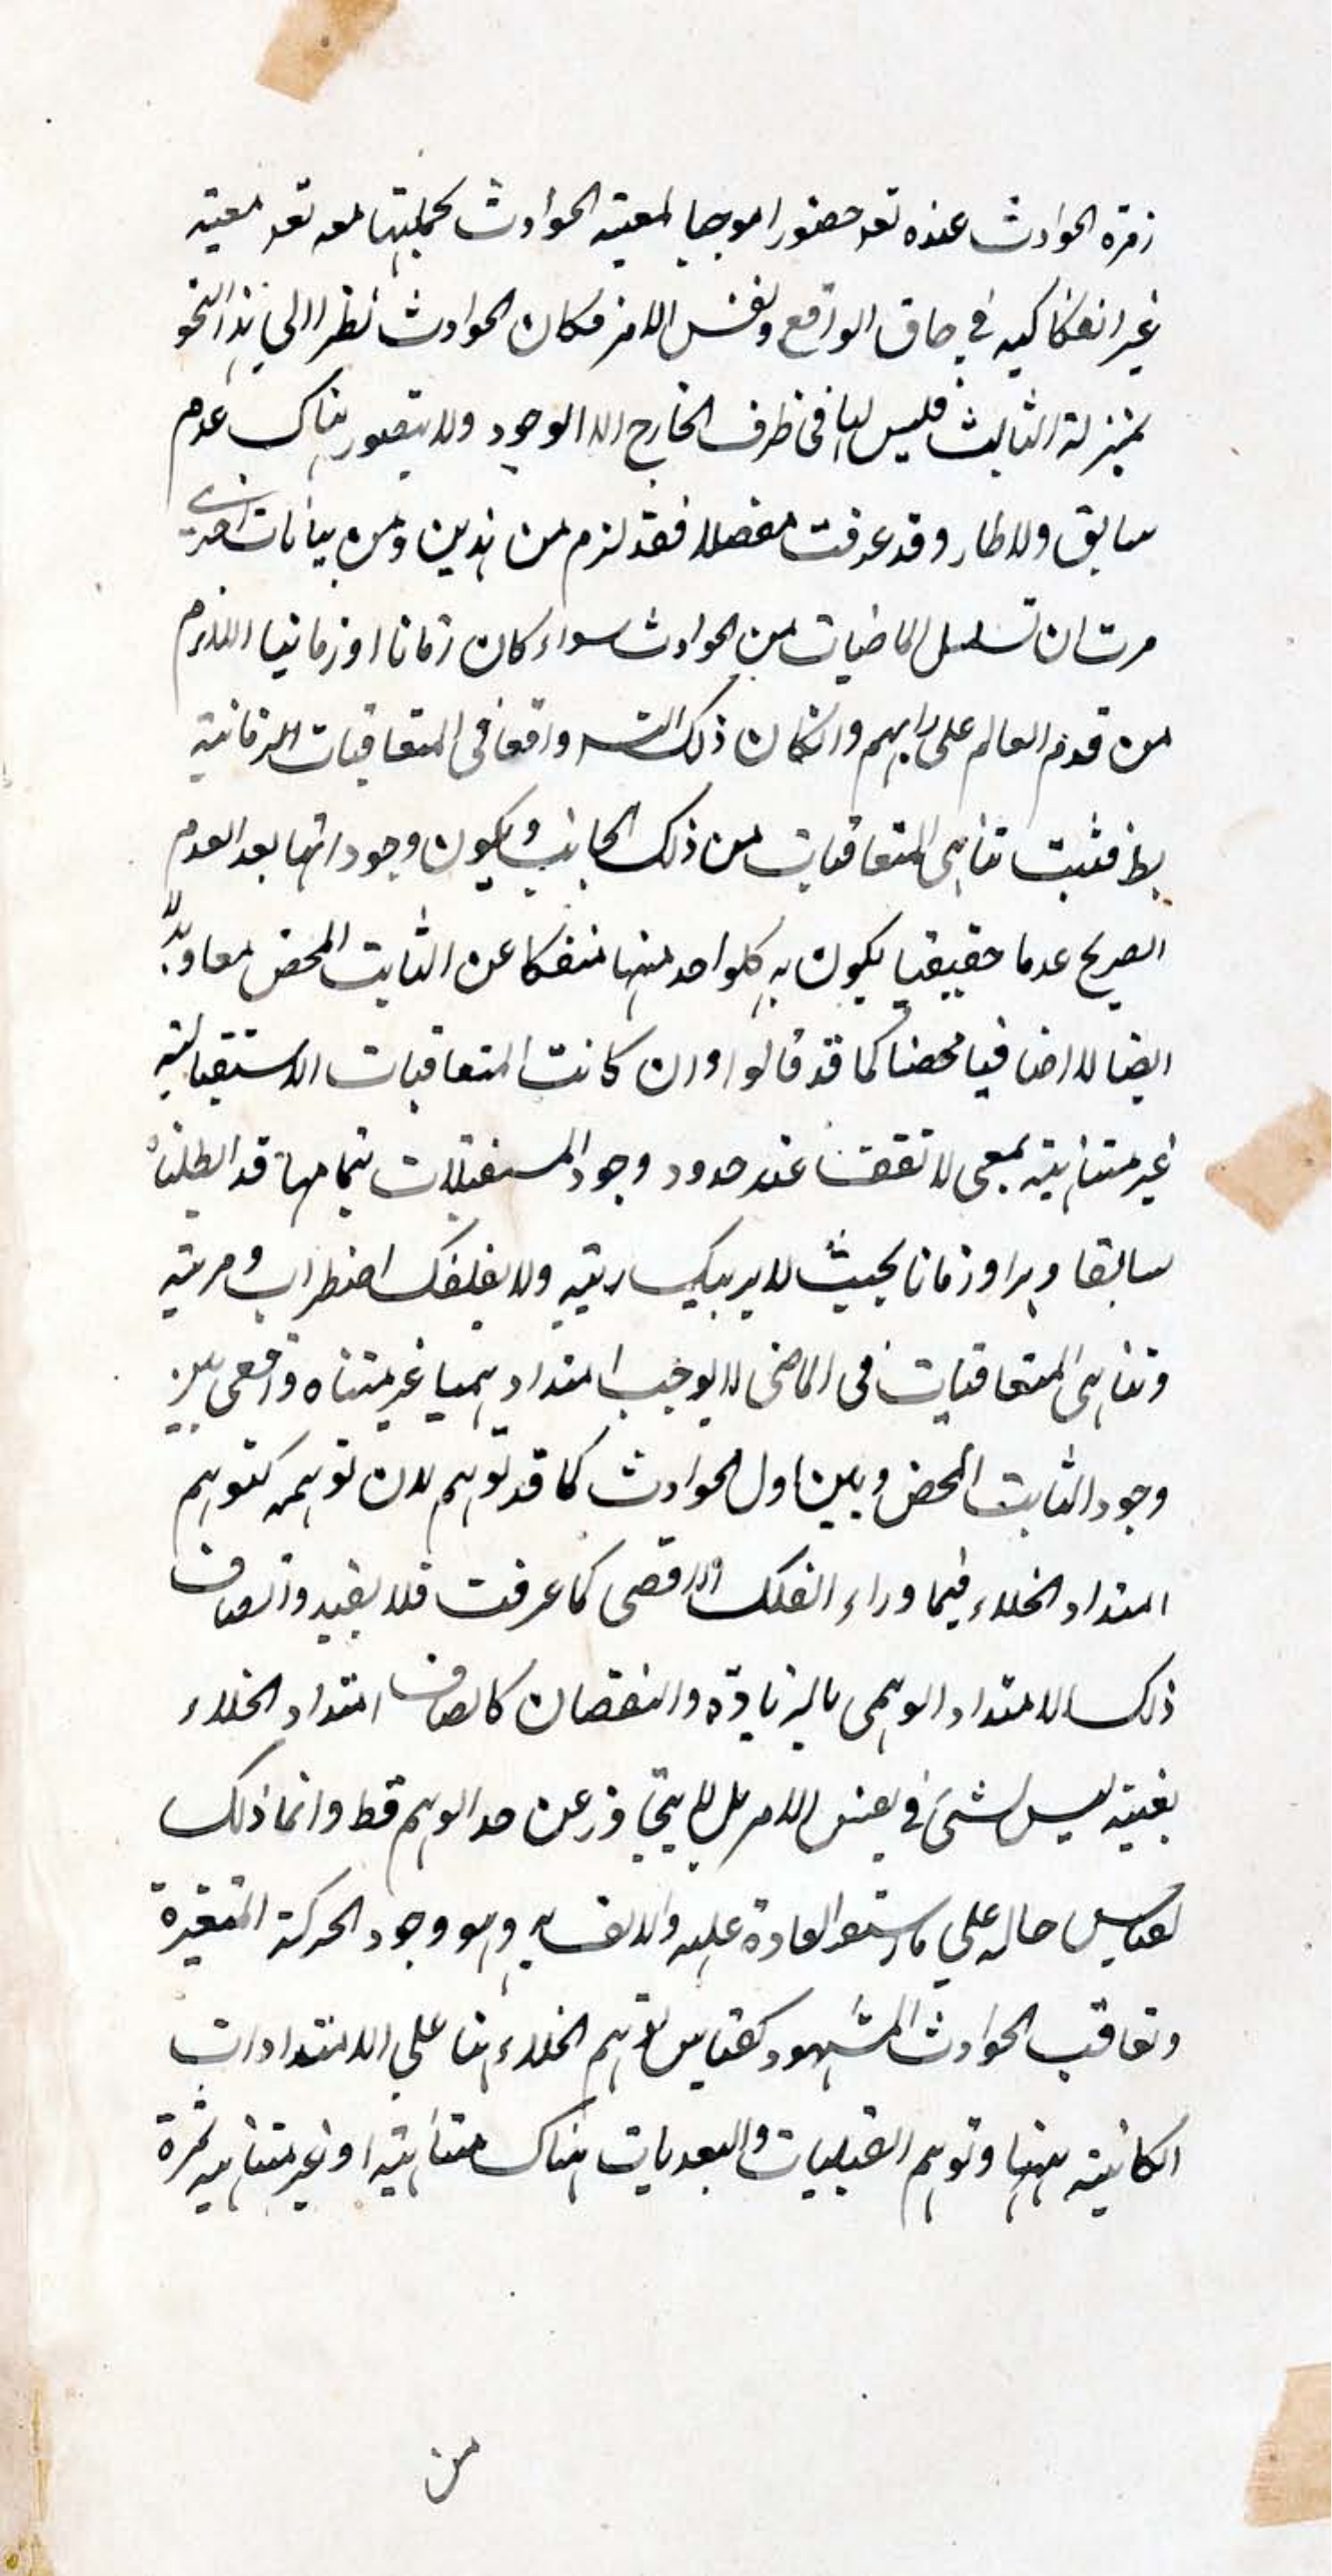 زمرة الحوادث عنده تعه حضورا موجبا لمعيته الحوادث بجمليتها معه تعه معيته
غير انفكاكيه في حاق الواقع ونفس الامر فكان الحوادث نظرا الى هذا النحو
بمنزلة الثابت فليس لها في ظرف الخارج الا الوجود ولا يتصور هناك عدم
سابق ولا طار وقد عرفت مفصلا فقد لزم من هذين ومن بيانات اخرى
مرت ان تسلسل الماضيات من الحوادث سواء كان زمانا او زمانيا اللازم
من قدم العالم على رايهم وانكان ذلك التسـ واقعا في المتعاقبات الزمانية
بط فثبت تناهى المتعاقبات من ذلك الجانب ويكون وجوداتها بعد العدم
الصريح عدما حقيقيا يكون به كلواحد منها منفكا عن الثابت المحض معا وبدلا
ايضا لا اضافيا محضا كما قد قالوا وان كانت المتعاقبات الاستقبالية
غير متناهيته بمعى لا تقف عند حدود وجود المستقبلات بتمامها قد ابطلناه
سابقا وهرا وزمانا بحيث لا يريبك ريبه ولا يقلقك اضطراب ومريته
وتناهى المتعاقبات في الماضى لا يوجب امتداد وهميا غير متناه واقعى بين
وجود الثابت المحض وبين اول الحوادث كما قد توهم لان توهمه كتوهم
امتداد الخلاء فيما وراء الفلك الاقصى كما عرفت فلا يفيد واتصاف
ذلك الامتداد الوهمى بالزيادة والنقصان كاتصاف امتداد الخلاء
بعينه ليس لشئ في نفس الامر بل لا يتجاوز عن حد الوهم قط وانما ذلك
لقياس حاله علي ما استمر العادة عليه والالف به وهو وجود الحركة المتغيرة
وتعاقب الحوادث المشهود كقياس توهم الخلاء هنا علي الامتدادات
الكائنة ههنا وتوهم القبليات والبعديات هناك متناهيته او غير متناهيه ثمرة
من